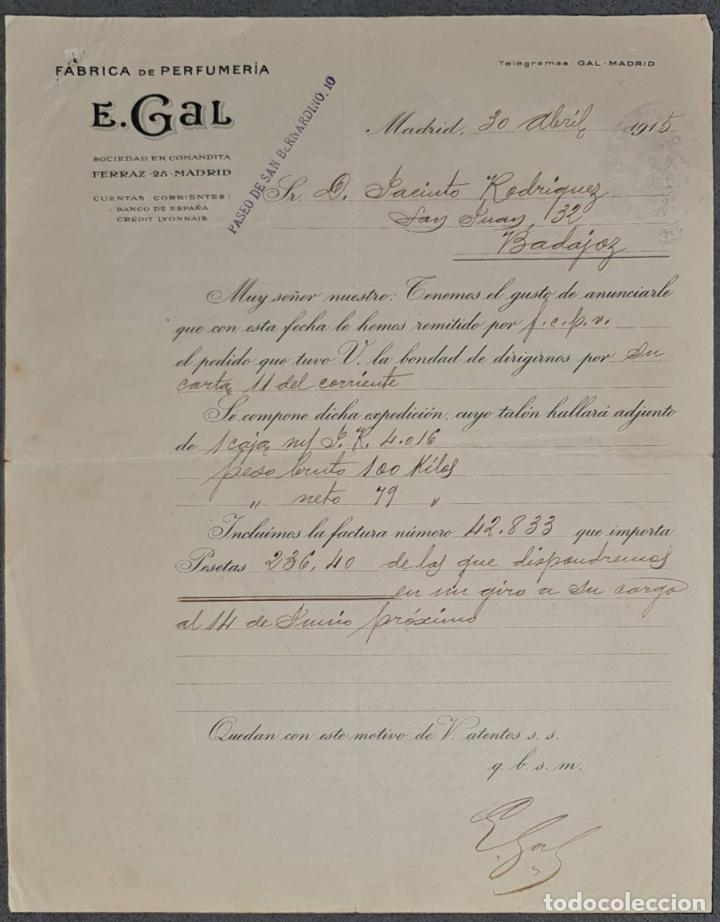 FÁBRICA DE PERFUMERÍA
E. GAL
SOCIEDAD EN COMANDITA
FERRAZ-25-MADRID
CUENTAS CORRIENTES:
BANCO DE ESPAÑA
CRÉDIT LYONNAIS
PASEO DE SAN BERNARDINO, 10
Telegramas: GAL-MADRID
Madrid, 30 Abril 1915
Sr. D. Jacinto Rodriguez
San Juan, 32
Badajoz
Muy señor nuestro: Tenemos el gusto de anunciarle
que con esta fecha le hemos remitido por f.c.p.v.
el pedido que tuvo V. la bondad de dirigirnos por su
carta 11 del corriente
Se compone dicha expedición, cuyo talón hallará adjunto
de 1 caja J. R. 4.016
peso bruto 100 Kilos
" neto 79 "
Incluimos la factura número 42.833 que importa
Pesetas 236,40 de las que dispondremos
en un giro a su cargo
al 14 de Junio próximo
Quedan con este motivo de V. atentos s. s.
q. b. s. m.
E. Gal
todocoleccion